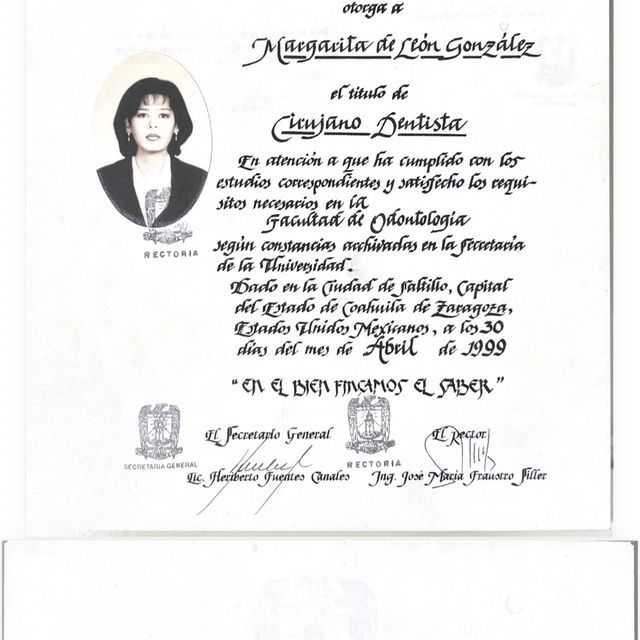 otorga a
Margarita de León González
el titulo de
Cirujano Dentista
En atención a que ha cumplido con los
estudios correspondientes y satisfecho los requi-
sitos necesarios en la
Facultad de Odontologia
según constancias archivadas en la Secretaría
de la Universidad.
Dado en la Ciudad de Saltillo, Capital
del Estado de Coahuila de Zaragoza,
Estados Unidos Mexicanos, a los 30
días del mes de Abril de 1999
"EN EL BIEN FINCAMOS EL SABER"
El Secretario General
El Rector
Lic. Heriberto Fuentes Canales
Ing. José María Fraustro Siller
RECTORIA
SECRETARIA GENERAL
RECTORIA